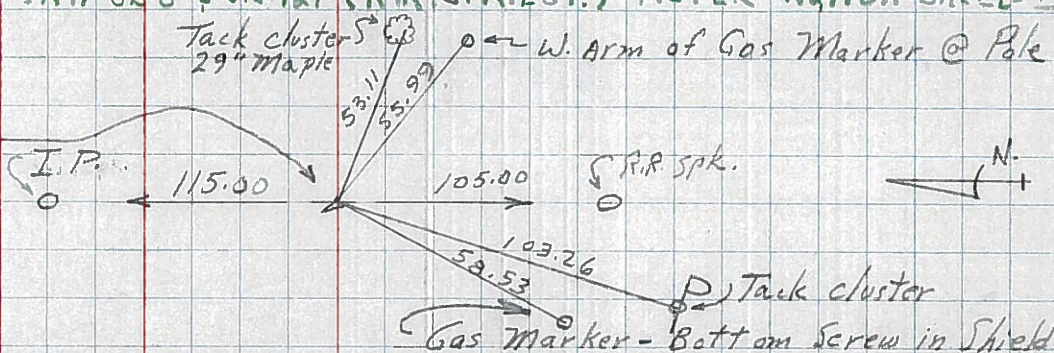 Tack cluster
29" Maple
W. Arm of Gas Marker @ Pole
53.11
55.99
I.P.
115.00
105.00
R.R. spk.
N.
103.26
58.53
Tack cluster
Gas Marker - Bottom Screw in Shield